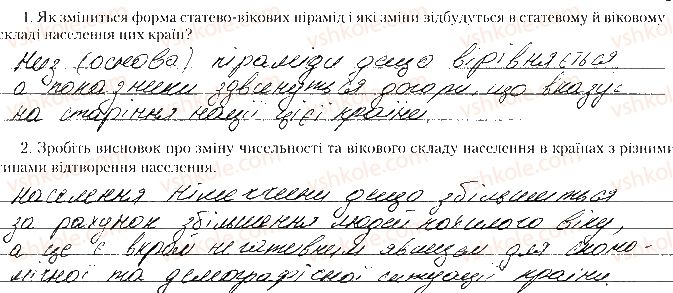 1. Як зміниться форма статево-вікових пірамід і які зміни відбудуться в статевому й віковому
складі населення цих країн?
Низ (основа) піраміди дещо вірівняється
а показники здвенуться догори, що вказує
на старіння нації цієї країни.
2. Зробіть висновок про зміну чисельності та вікового складу населення в країнах з різними
типами відтворення населення.
Населення Німеччини дещо збільшиться
за рахунок збільшення людей похилого віку,
а це є вкрай негативним явищем для еконо-
мічної та демографічної ситуації країни.